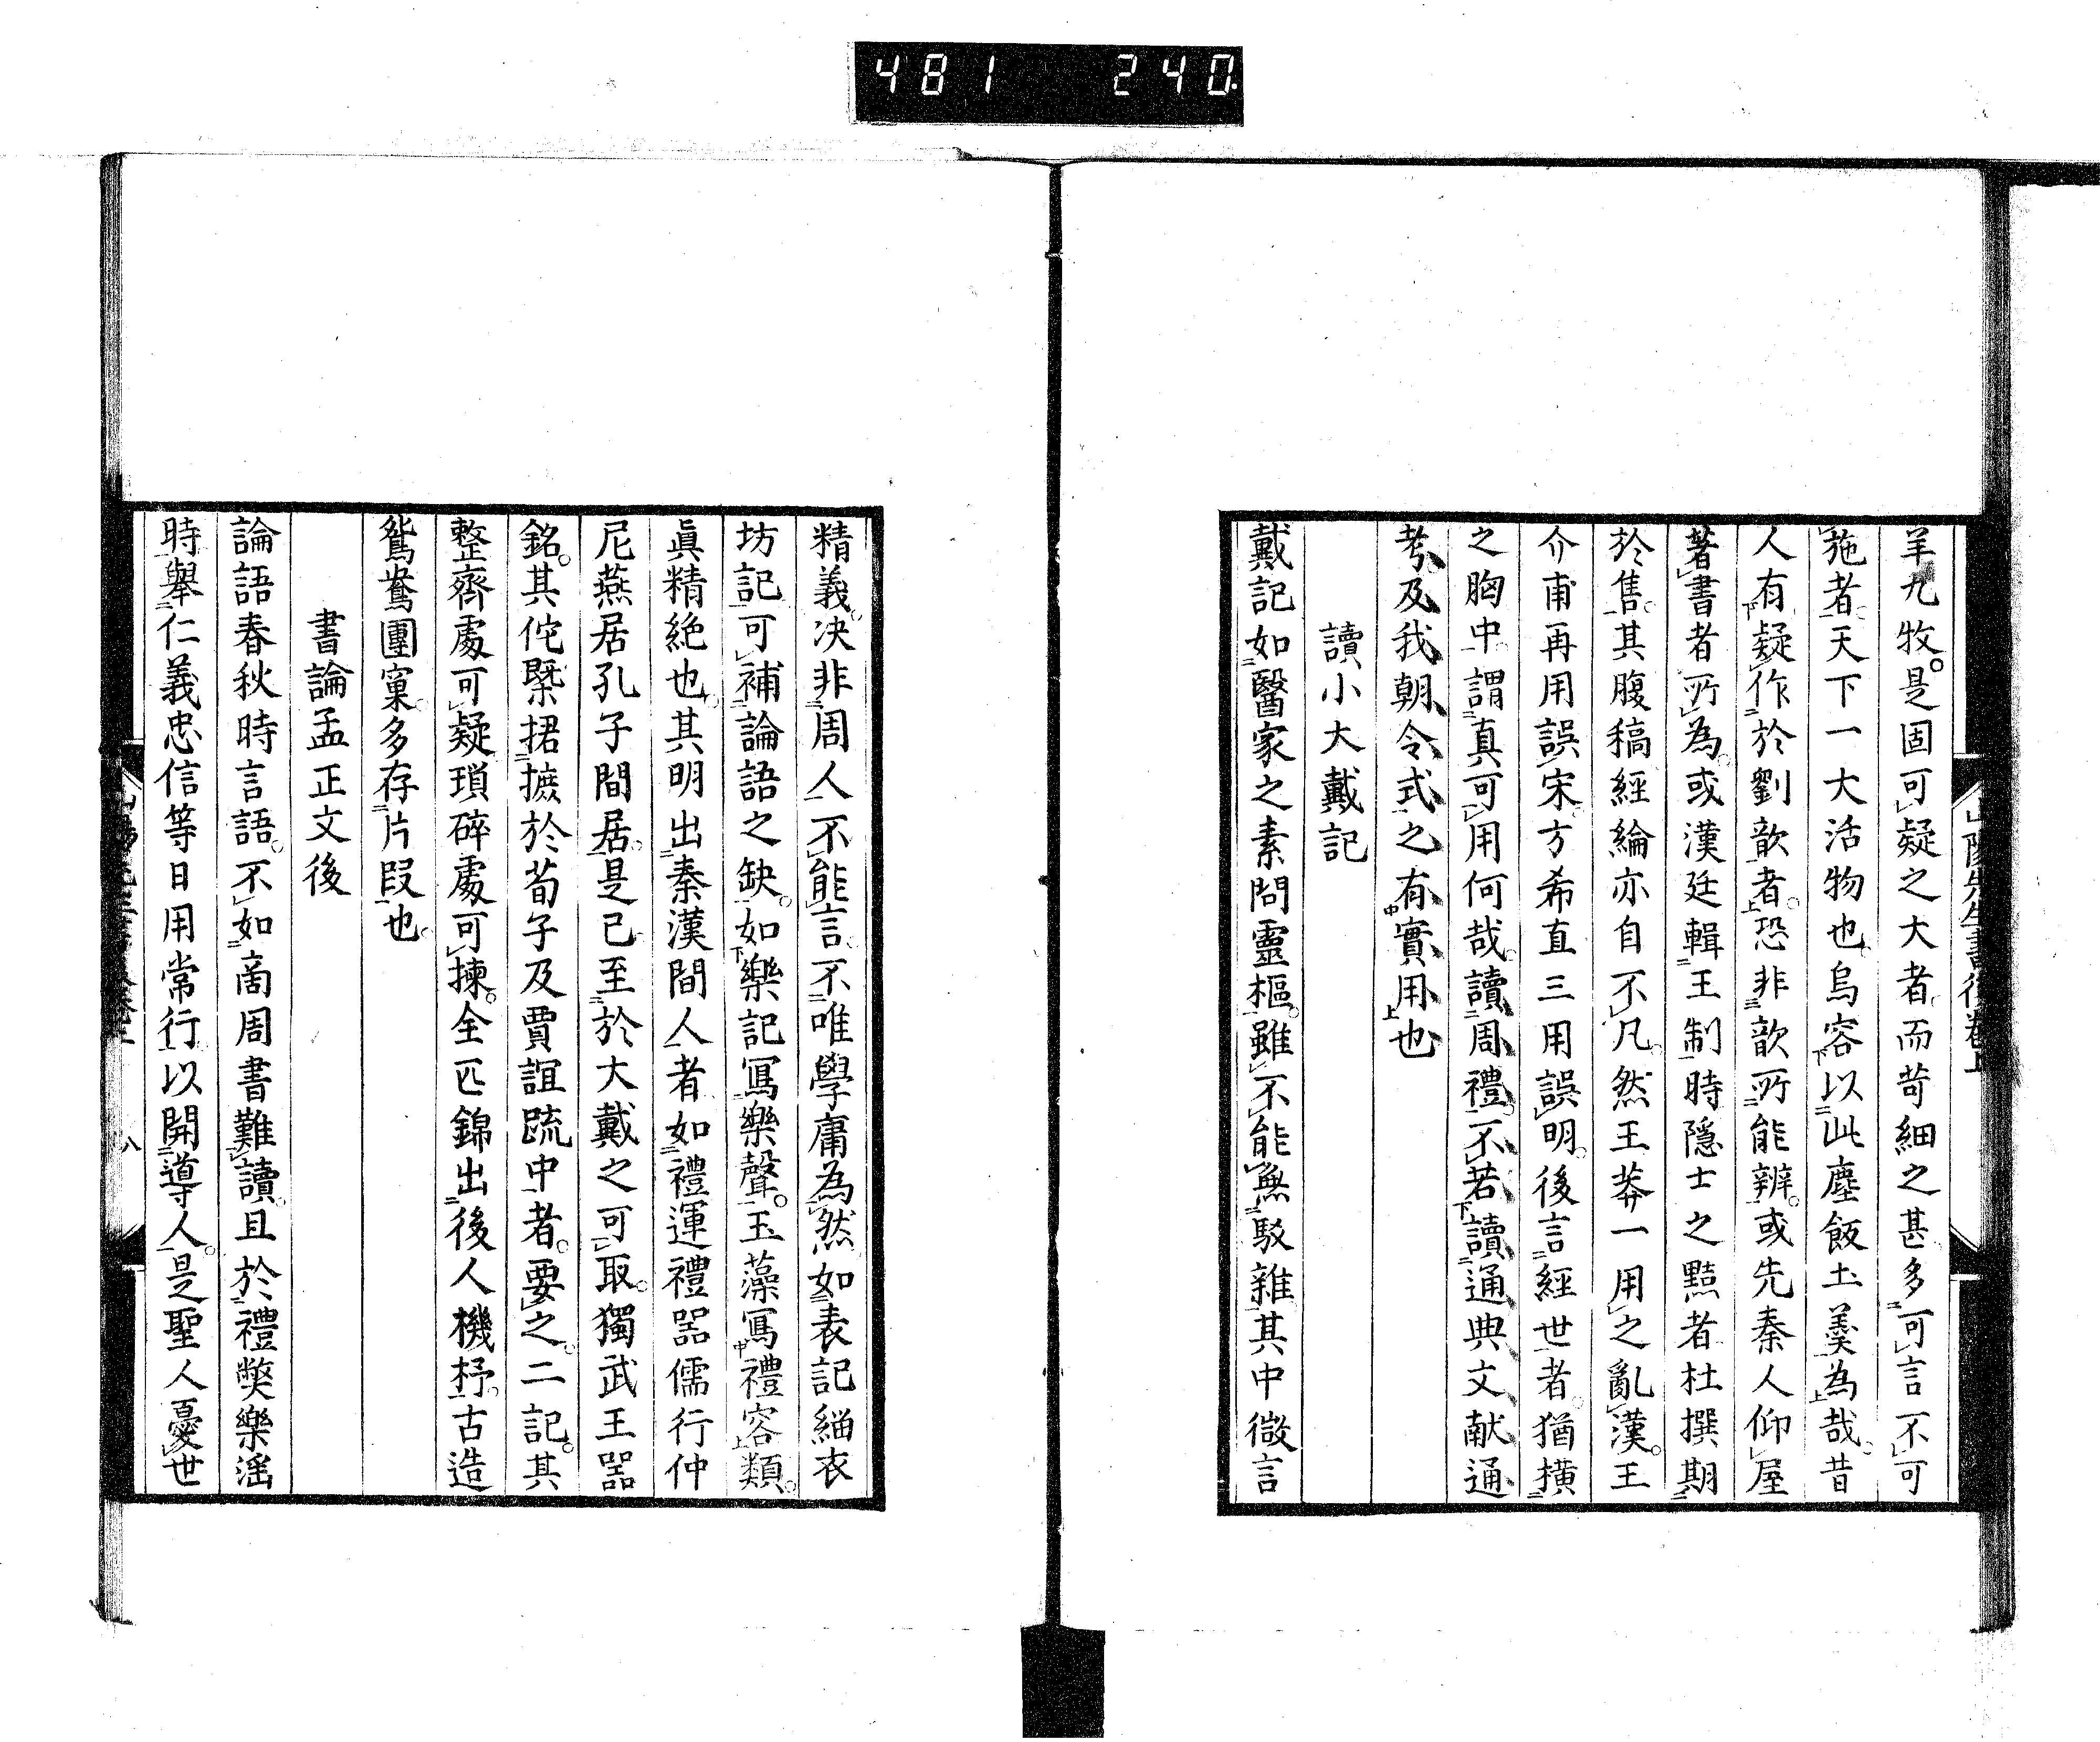 481 240
山陽先生書後卷上
羊九牧是固可疑之大者而苛細之甚多可言不可
施者天下一大活物也烏容以此塵飯土羹為哉昔
人有疑作於劉歆者恐非歆所能辨或先秦人仰屋
著書者所為或漢廷輯王制時隱士之黠者杜撰期
於售其腹稿經綸亦自不凡然王莽一用之亂漢王
介甫再用誤宋方希直三用誤明後言經世者猶橫
之胸中謂真可用何哉讀周禮不若讀通典文獻通
考及我朝令式之有實用也
讀小大戴記
戴記如醫家之素問靈樞雖不能無駁雜其中微言
精義決非周人不能言不唯學庸為然如表記緇衣
坊記可補論語之缺如樂記寫樂聲玉藻寫禮容類
眞精絕也其明出秦漢間人者如禮運禮器儒行仲
尼燕居孔子間居是已至於大戴之可取獨武王器
銘其佗槩捃摭於荀子及賈誼疏中者要之二記其
整齊處可疑瑣碎處可揀全匹錦出後人機杼古造
鴛鴦團窠多存片段也
書論孟正文後
論語春秋時言語不如商周書難讀且於禮樂樂滛
時舉仁義忠信等日用常行以開導人是聖人憂世
八